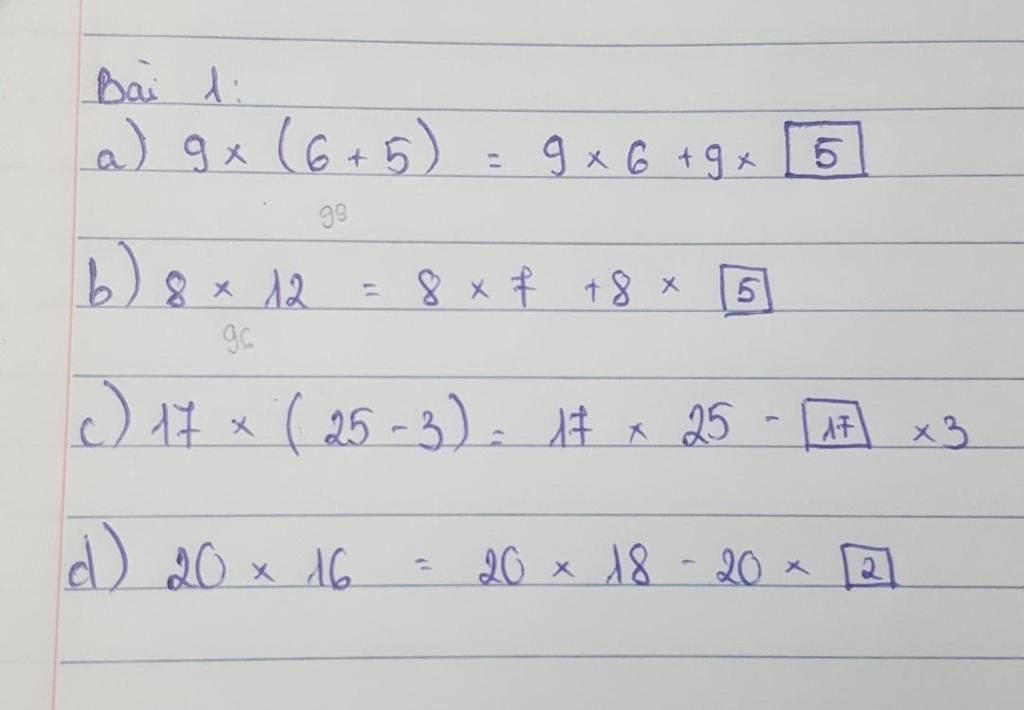 Bài 1:
a) 9 × (6 + 5) = 9 × 6 + 9 × 5
99
b) 8 × 12 = 8 × 7 + 8 × 5
96
c) 17 × (25 - 3) = 17 × 25 - 17 × 3
d) 20 × 16 = 20 × 18 - 20 × 2